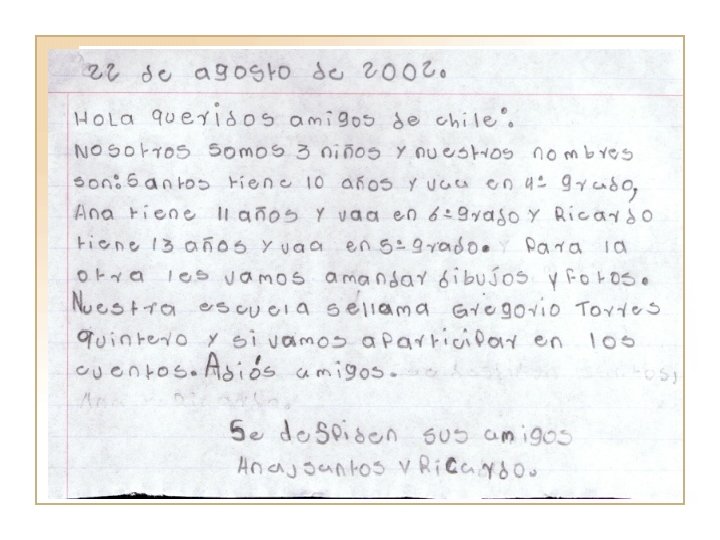 22 de agosto de 2002.
HoLa queridos amigos de chile:.
Nosotros somos 3 niños y nuestros nombres
son: Santos tiene 10 años y vaa en 4º grado,
Ana tiene 11 años y vaa en 6º grado y Ricardo
tiene 13 años y vaa en 5º grado. Para la
otra les vamos amandar dibujos y fotos.
Nuestra escuela séllama Gregorio Torres
Quintero y si vamos aParticiPar en los
cuentos. Adiós amigos.
Ana y Ricardo.
Se desPiden sus amigos
Ana, santos y Ricardo.